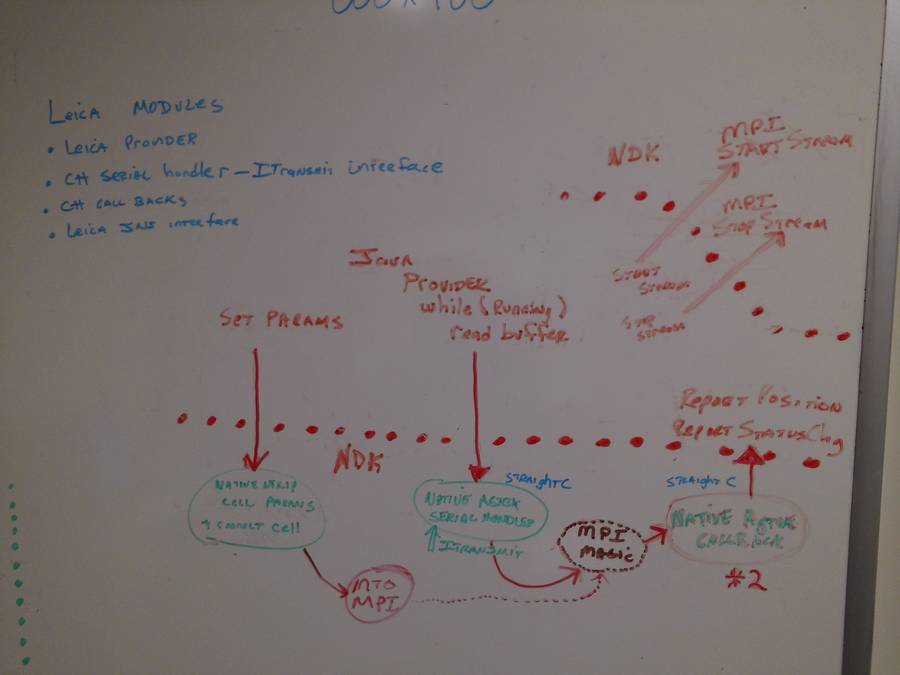 Leica MODULES
• Leica PROVIDER
• CH Serial handler – ITransmit interface
• CH CALL BACKS
• Leica JNI interface
NDK
MPI
START Stream
MPI
Stop Stream
START
STREAM
STOP
STREAM
JAVA
PROVIDER
while (Running)
read buffer
SET PARAMS
REPORT POSITION
REPORT STATUS Chg
NDK
STRAIGHT C
STRAIGHT C
NATIVE STRIP
CELL PARAMS
CONNECT CELL
NATIVE
SERIAL HANDLER
ITRANSMIT
MPI
MAGIC
NATIVE
CALLBACK
#2
INTO
MPI